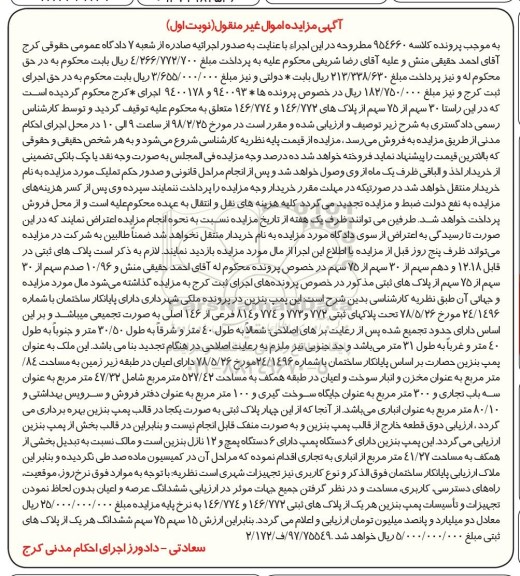 آگهی مزایده اموال غیر منقول (نوبت اول)
به موجب پرونده کلاسه ۹۵۴۶۶۰ مطروحه در این اجراء با عنایت به صدور اجرائیه صادره از شعبه ۷ دادگاه عمومی حقوقی کرج
آقای احمد حقیقی منش و علیه آقای رضا شریفی محکوم علیه به پرداخت مبلغ ۴/۲۶۶/۷۷۲/۷۰۰ ریال بابت محکوم به در حق
محکوم له و نیز پرداخت مبلغ ۲۱۳/۳۳۸/۶۳۰ ریال بابت * دولتی و نیز مبلغ ۳/۶۵۵/۰۰۰/۰۰۰ ریال بابت محکوم به در حق اجرای
ثبت کرج و نیز مبلغ ۱۸۲/۷۵۰/۰۰۰ ریال در خصوص پرونده ها * ۹۴۰۰۹۳ و ۹۴۰۰۱۷۸ اجرای * کرج محکوم گردیده است
که در این راستا ۳۰ سهم از ۷۵ سهم از پلاک های ۱۴۶/۷۷۲ و ۱۴۶/۷۷۴ متعلق به محکوم علیه توقیف گردید و توسط کارشناس
رسمی دادگستری به شرح زیر توصیف و ارزیابی شده و مقرر است در مورخ ۹۸/۲/۲۵ از ساعت ۹ الی ۱۰ در محل اجرای احکام
مدنی از طریق مزایده به فروش می‌رسد، مزایده از قیمت پایه نظریه کارشناسی شروع می‌شود و به هر شخص حقیقی و حقوقی
که بالاترین قیمت را پیشنهاد نماید فروخته خواهد شد ده درصد وجه مزایده فی المجلس به صورت وجه نقد یا چک بانکی تضمینی
از خریدار اخذ و الباقی ظرف یک ماه از وی وصول خواهد شد و پس از انجام مراحل قانونی و صدور حکم تملیک مورد مزایده به نام
خریدار منتقل خواهد شد. در صورتیکه در مهلت مقرر خریدار وجه مزایده را پرداخت ننمایند سپرده وی پس از کسر هزینه‌های
مزایده به نفع دولت ضبط و مزایده تجدید می گردد کلیه هزینه های نقل و انتقال به عهده محکوم‌علیه است و از محل فروش
پرداخت خواهد شد. طرفین می توانند ظرف یک هفته از تاریخ مزایده نسبت به نحوه انجام مزایده اعتراض نمایند که در این
صورت تا رسیدگی به اعتراض از سوی دادگاه مورد مزایده به نام خریدار منتقل نخواهد شد ضمناً طالبین به شرکت در مزایده
می‌تواند ظرف پنج روز قبل از مزایده با اطلاع این اجرا از مال مورد مزایده بازدید نمایند لازم به ذکر است پلاک های ثبتی در
قابل ۱۲.۱۸ و دهم سهم از ۳۰ سهم از ۷۵ سهم در خصوص پرونده محکوم له آقای احمد حقیقی منش و ۱۰/۹۶ صدم سهم از ۳۰
سهم از ۷۵ سهم از پلاک های ثبتی مذکور در خصوص پرونده‌های اجرای ثبت کرج به مزایده گذاشته می‌شود مال مورد مزایده
و جهانی آن طبق نظریه کارشناسی بدین شرح است: این پمپ بنزین در پرونده ملکی شهرداری دارای پایانکار ساختمان با شماره
۲۴/۱۴۹۶ مورخ ۷۸/۵/۲۶ تحت پلاکهای ثبتی ۷۷۲ و ۷۷۳ و ۷۷۴ و ۸۱۴ فرعی از ۱۴۶ اصلی به صورت تجمیعی میباشد و بر این
اساس دارای حدود تجمیع شده پس از رعایت بر های اصلاحی شمالاً به طول ۴۰ متر و شرقاً به طول ۳۰/۵۰ متر و جنوباً به طول
۴۰ متر و غرباً به طول ۳۱ متر می‌باشد و حد جنوبی نیز ملزم به رعایت اصلاحی در هنگام تجدید بنا می باشد. این ملک به عنوان
پمپ بنزین حصارت بر اساس پایانکار ساختمان با شماره ۲۴/۱۴۹۶ مورخ ۷۸/۵/۲۶ دارای اعیان در طبقه زیر زمین به مساحت ۸۴/
متر مربع به عنوان مخزن و انبار سوخت و اعیان در طبقه همکف به مساحت ۵۲۷/۴۲ مترمربع شامل ۴۷/۳۲ متر مربع به عنوان
سه باب تجاری و ۳۰۰ متر مربع به عنوان جایگاه سوخت گیری و ۱۰۰ متر مربع به عنوان دفتر فروش و سرویس بهداشتی و
۸۰/۱۰ متر مربع به عنوان انباری می‌باشد. از آنجا که از این چهار پلاک ثبتی به صورت یکجا در قالب پمپ بنزین بهره برداری می
گردد، ارزیابی دوق قطعه خارج از قالب پمپ بنزین و به صورت منفک قابل انجام نیست و بنابراین در قالب بخش از پمپ بنزین
ارزیابی می گردد. این پمپ بنزین دارای ۶ دستگاه پمپ دارای ۶ دستگاه پمچ و ۱۲ نازل بنزین است و مالک نسبت به تبدیل بخشی از
همکف به مساحت ۴۱/۲۷ متر مربع از انباری به تجاری اقدام نموده که مراحل آن در کمیسیون ماده صد طی نگردیده و بنابر این
ملاک ارزیابی پایانکار ساختمان فوق الذکر و نوع کاربری نیز تجهیزات شهری است نظریه: با توجه به موارد فوق نرخ روز، موقعیت،
راه‌های دسترسی، کاربری، مساحت و در نظر گرفتن جمیع جهات موثر در ارزیابی، ششدانگ عرصه و اعیان بدون لحاظ نمودن
تجهیزات و تأسیسات پمپ بنزین هر یک از پلاک های ثبتی ۱۴۶/۷۷۲ و ۱۴۶/۷۷۴ به نرخ پایه مزایده مبلغ ۲۵/۰۰۰/۰۰۰/۰۰۰ ریال
معادل دو میلیارد و پانصد میلیون تومان ارزیابی و اعلام می گردد. بنابراین ارزش ۱۵ سهم از ۷۵ سهم ششدانگ هر یک از پلاک های
ثبتی مبلغ ۵/۰۰۰/۰۰۰/۰۰۰ ریال خواهد شد. ۹۷/۷۵۵۴۹/ف ۲/۱۷۲/
سعادتی - دادورز اجرای احکام مدنی کرج